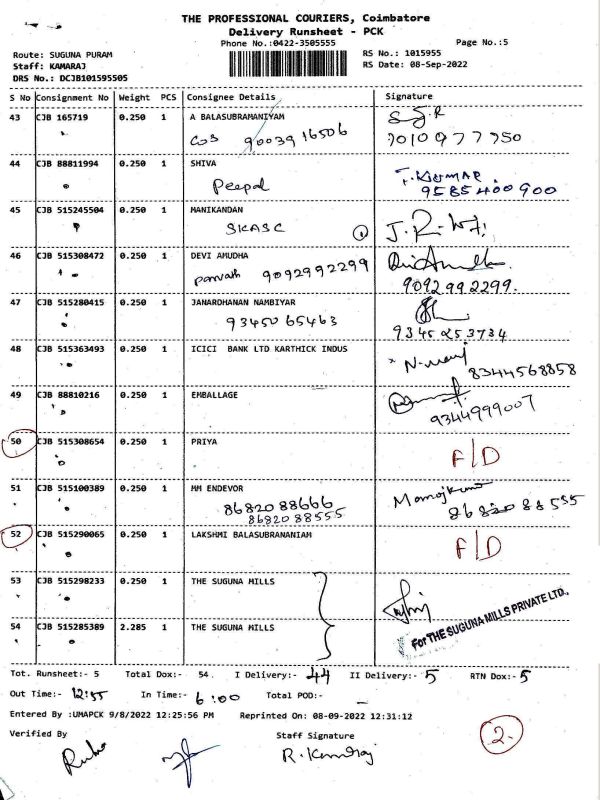 THE PROFESSIONAL COURIERS, Coimbatore
Delivery Runsheet - PCK
Phone No.:0422-3505555
Page No.:5
Route: SUGUNA PURAM
Staff: KAMARAJ
DRS No.: DCJB101595505
RS No.: 1015955
RS Date: 08-Sep-2022
S No Consignment No Weight PCS Consignee Details Signature
43 CJB 165719 0.250 1 A BALASUBRAMANIYAM
90039 16506
7010977750
44 CJB 88811994 0.250 1 SHIVA
Peepal
T. KUMAR
9585400900
45 CJB 515245504 0.250 1 MANIKANDAN
SKASC
1
46 CJB 515308472 0.250 1 DEVI AMUDHA
9092992299
9092992299.
47 CJB 515280415 0.250 1 JANARDHANAN NAMBIYAR
93450 65463
9345253734
48 CJB 515363493 0.250 1 ICICI BANK LTD KARTHICK INDUS
8344568858
49 CJB 88810216 0.250 1 EMBALLAGE
9344999007
50 CJB 515308654 0.250 1 PRIYA
F/D
51 CJB 515100389 0.250 1 MM ENDEVOR
86820 88666
86820 88555
86820 88555
52 CJB 515290065 0.250 1 LAKSHMI BALASUBRANANIAM
F/D
53 CJB 515298233 0.250 1 THE SUGUNA MILLS
For THE SUGUNA MILLS PRIVATE LTD.,
54 CJB 515285389 2.285 1 THE SUGUNA MILLS
Tot. Runsheet:- 5 Total Dox:- 54 I Delivery:- 44 II Delivery:- 5 RTN Dox:- 5
Out Time:- 12:55 In Time:- 6:00 Total POD:-
Entered By :UMAPCK 9/8/2022 12:25:56 PM Reprinted On: 08-09-2022 12:31:12
Verified By Staff Signature
R. Kamaraj
2